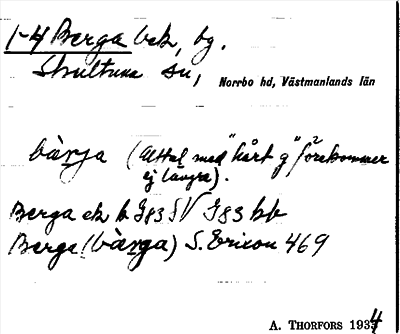 1-4 Berga bek, bg.
Skultuna sn, Norrbo hd, Västmanlands län
bàrja (Uttal med "hårt g" förekommer
ej längre).
Berga ek b G83 SV G83 bb
Berga (bàrga) S. Ericon 469
A. THORFORS 1934